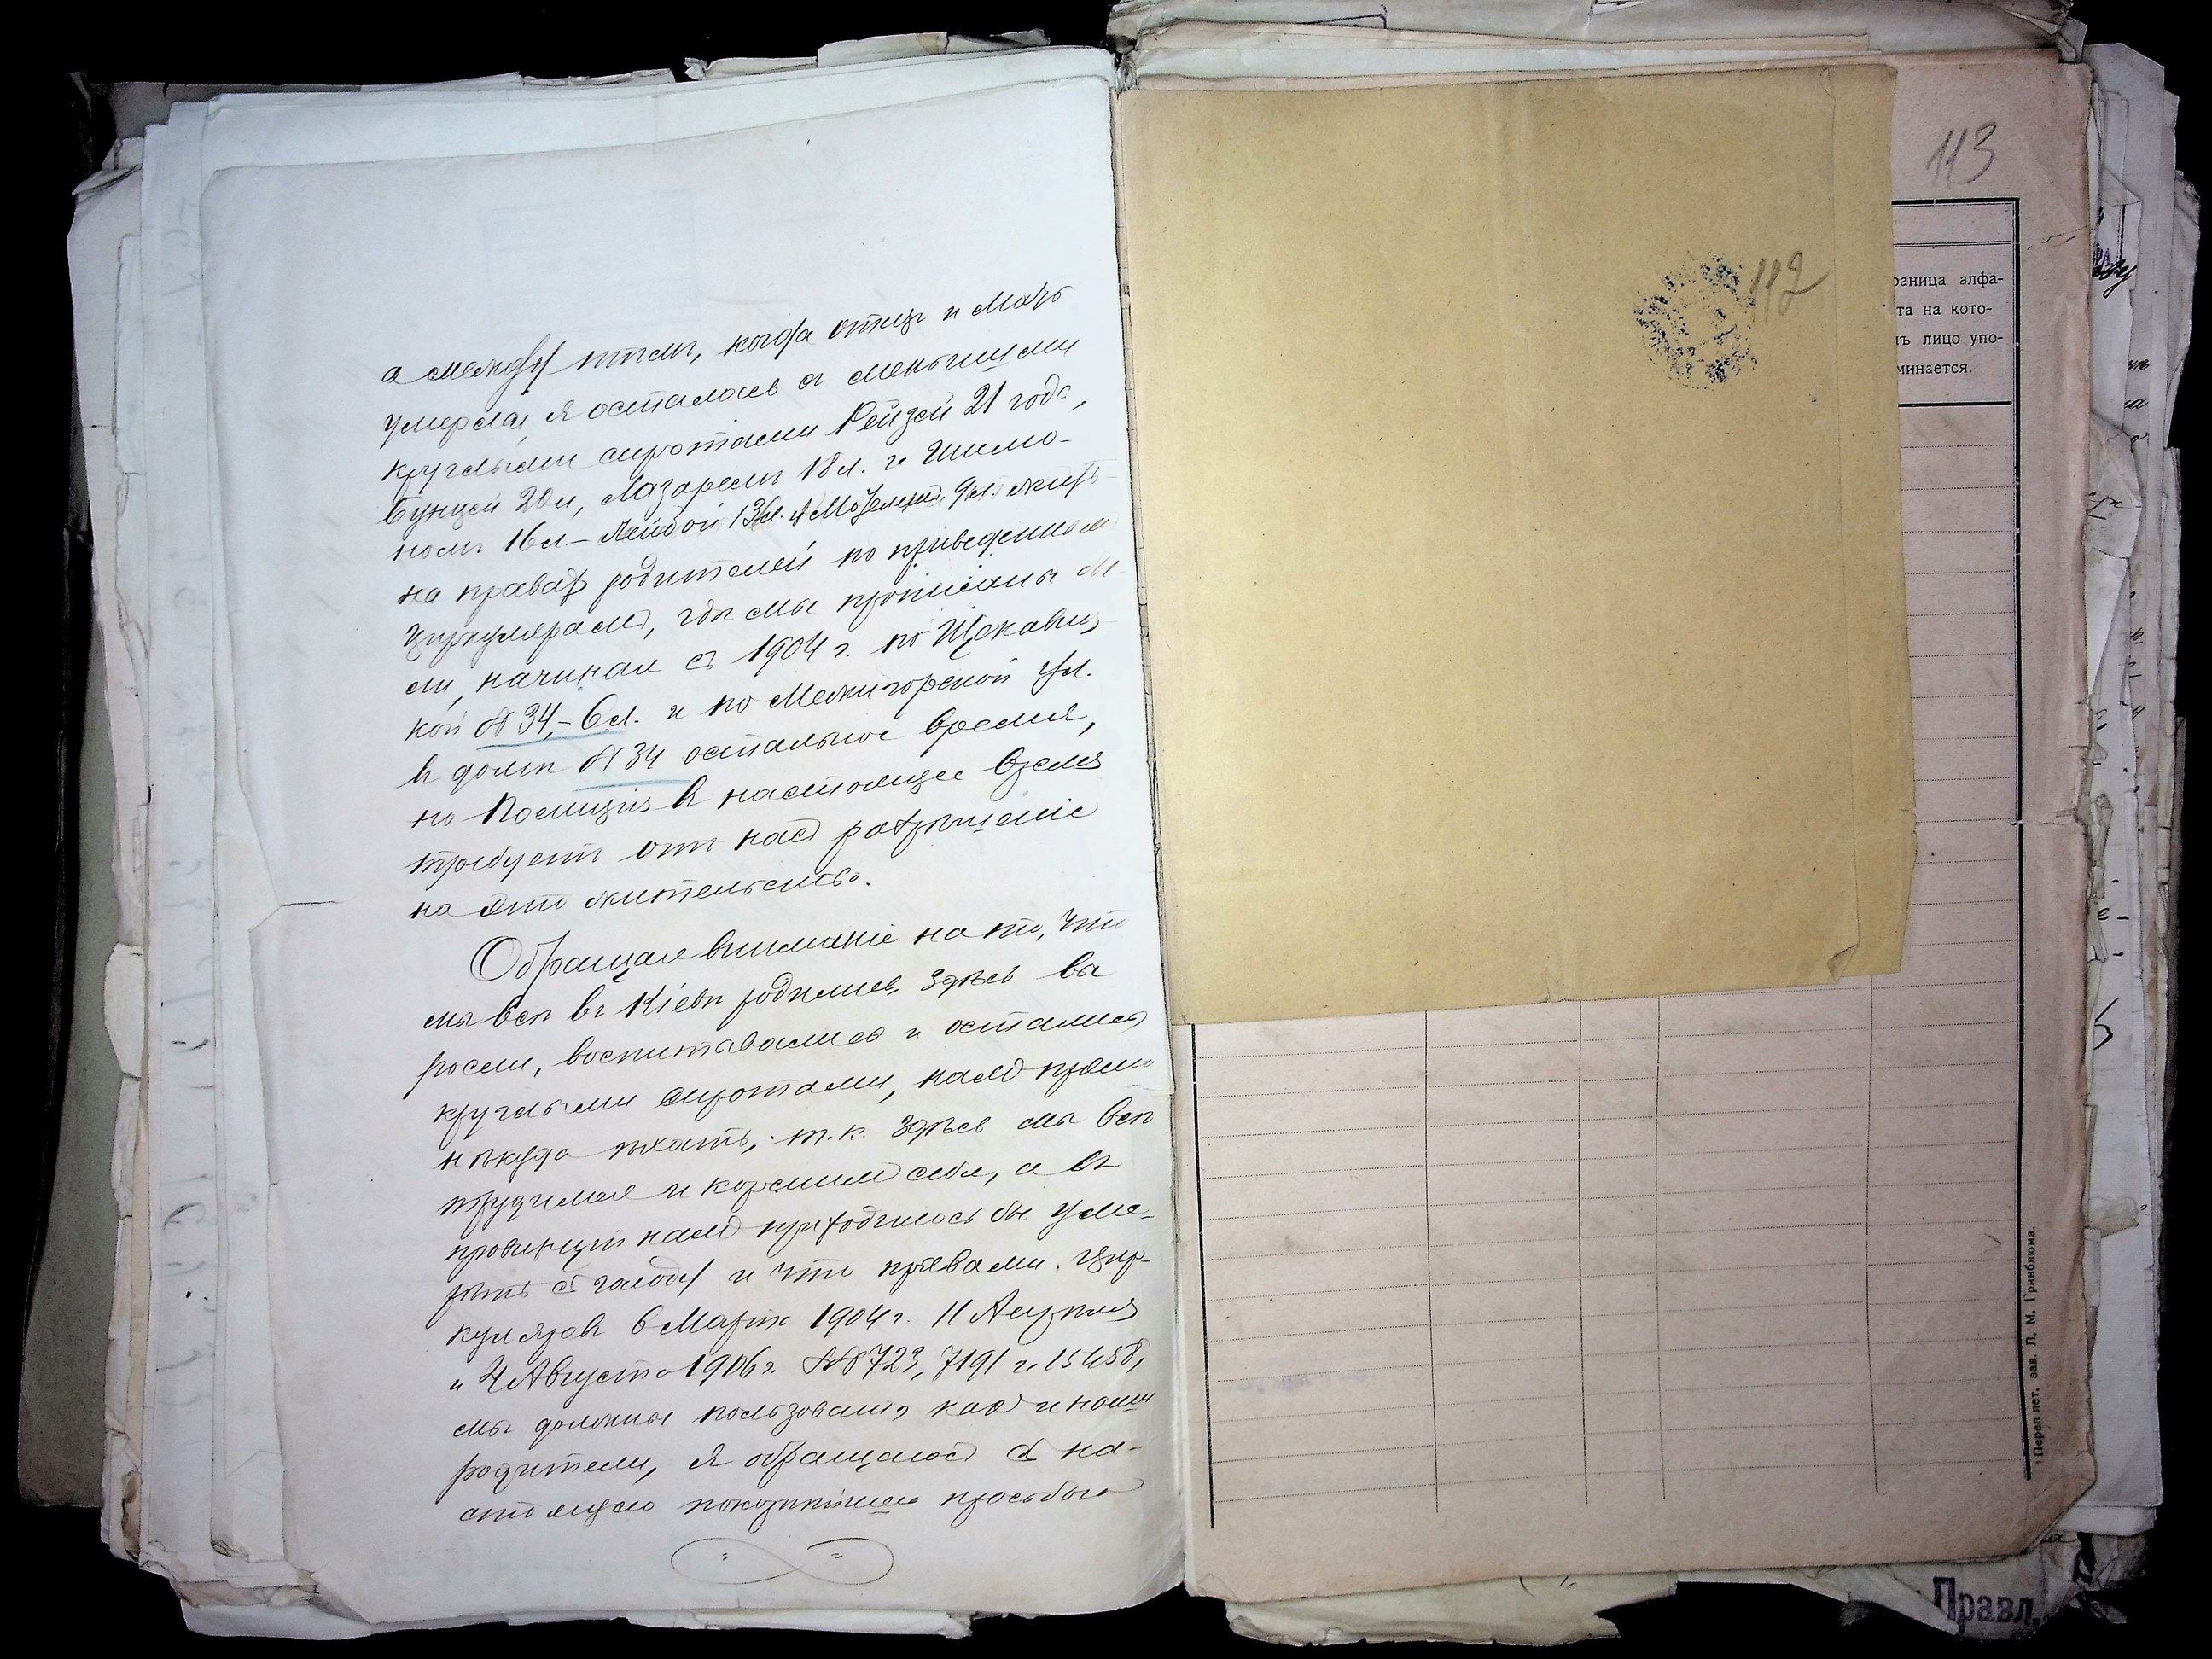 а между тѣмъ, когда отецъ и мать
умерла, я осталась съ меньшими
круглыми сиротами Рейзей 21 года,
Бунцей 20 л, Лазаремъ 18 л. и Шимо-
номъ 16 л.- Лейбой 13 л. и 9 л. жить
на правах родителей по приведеннымъ
циркулярамъ, гдѣ мы прописаны
ли, начиная съ 1904 г. по Щекавиц
кой № 34,- 6 л. и по Межигорской ул.
въ домѣ № 34 остальное время,
но Полиція въ настоящее время
требуетъ отъ насъ разрѣшеніе
на это жительство.
Обращая вниманіе на то, что
мы всѣ въ Кіевѣ родились, здѣсь вы
росли, воспитавались и остались
круглыми сиротами, намъ прямо
нѣкуда ѣхать, т. к. здѣсь мы всѣ
трудимся и кормимъ себя, а въ
провинціи намъ приходилось бы уме-
рѣть съ голоду и что правами. цир-
куляровъ 6 Марта 1904 г. 11 Апрѣля
и 4 Августа 1906 г. №№ 723, 7191 и
мы должны пользоваться какъ и наши
родители, я обращаюсь съ на-
стоящею покорнѣйшею просьбою
112
113
раница алфа-
та на кото-
мъ лицо упо-
минается.
Переплет. зав. Л. М. Гринблюма.
Правл.